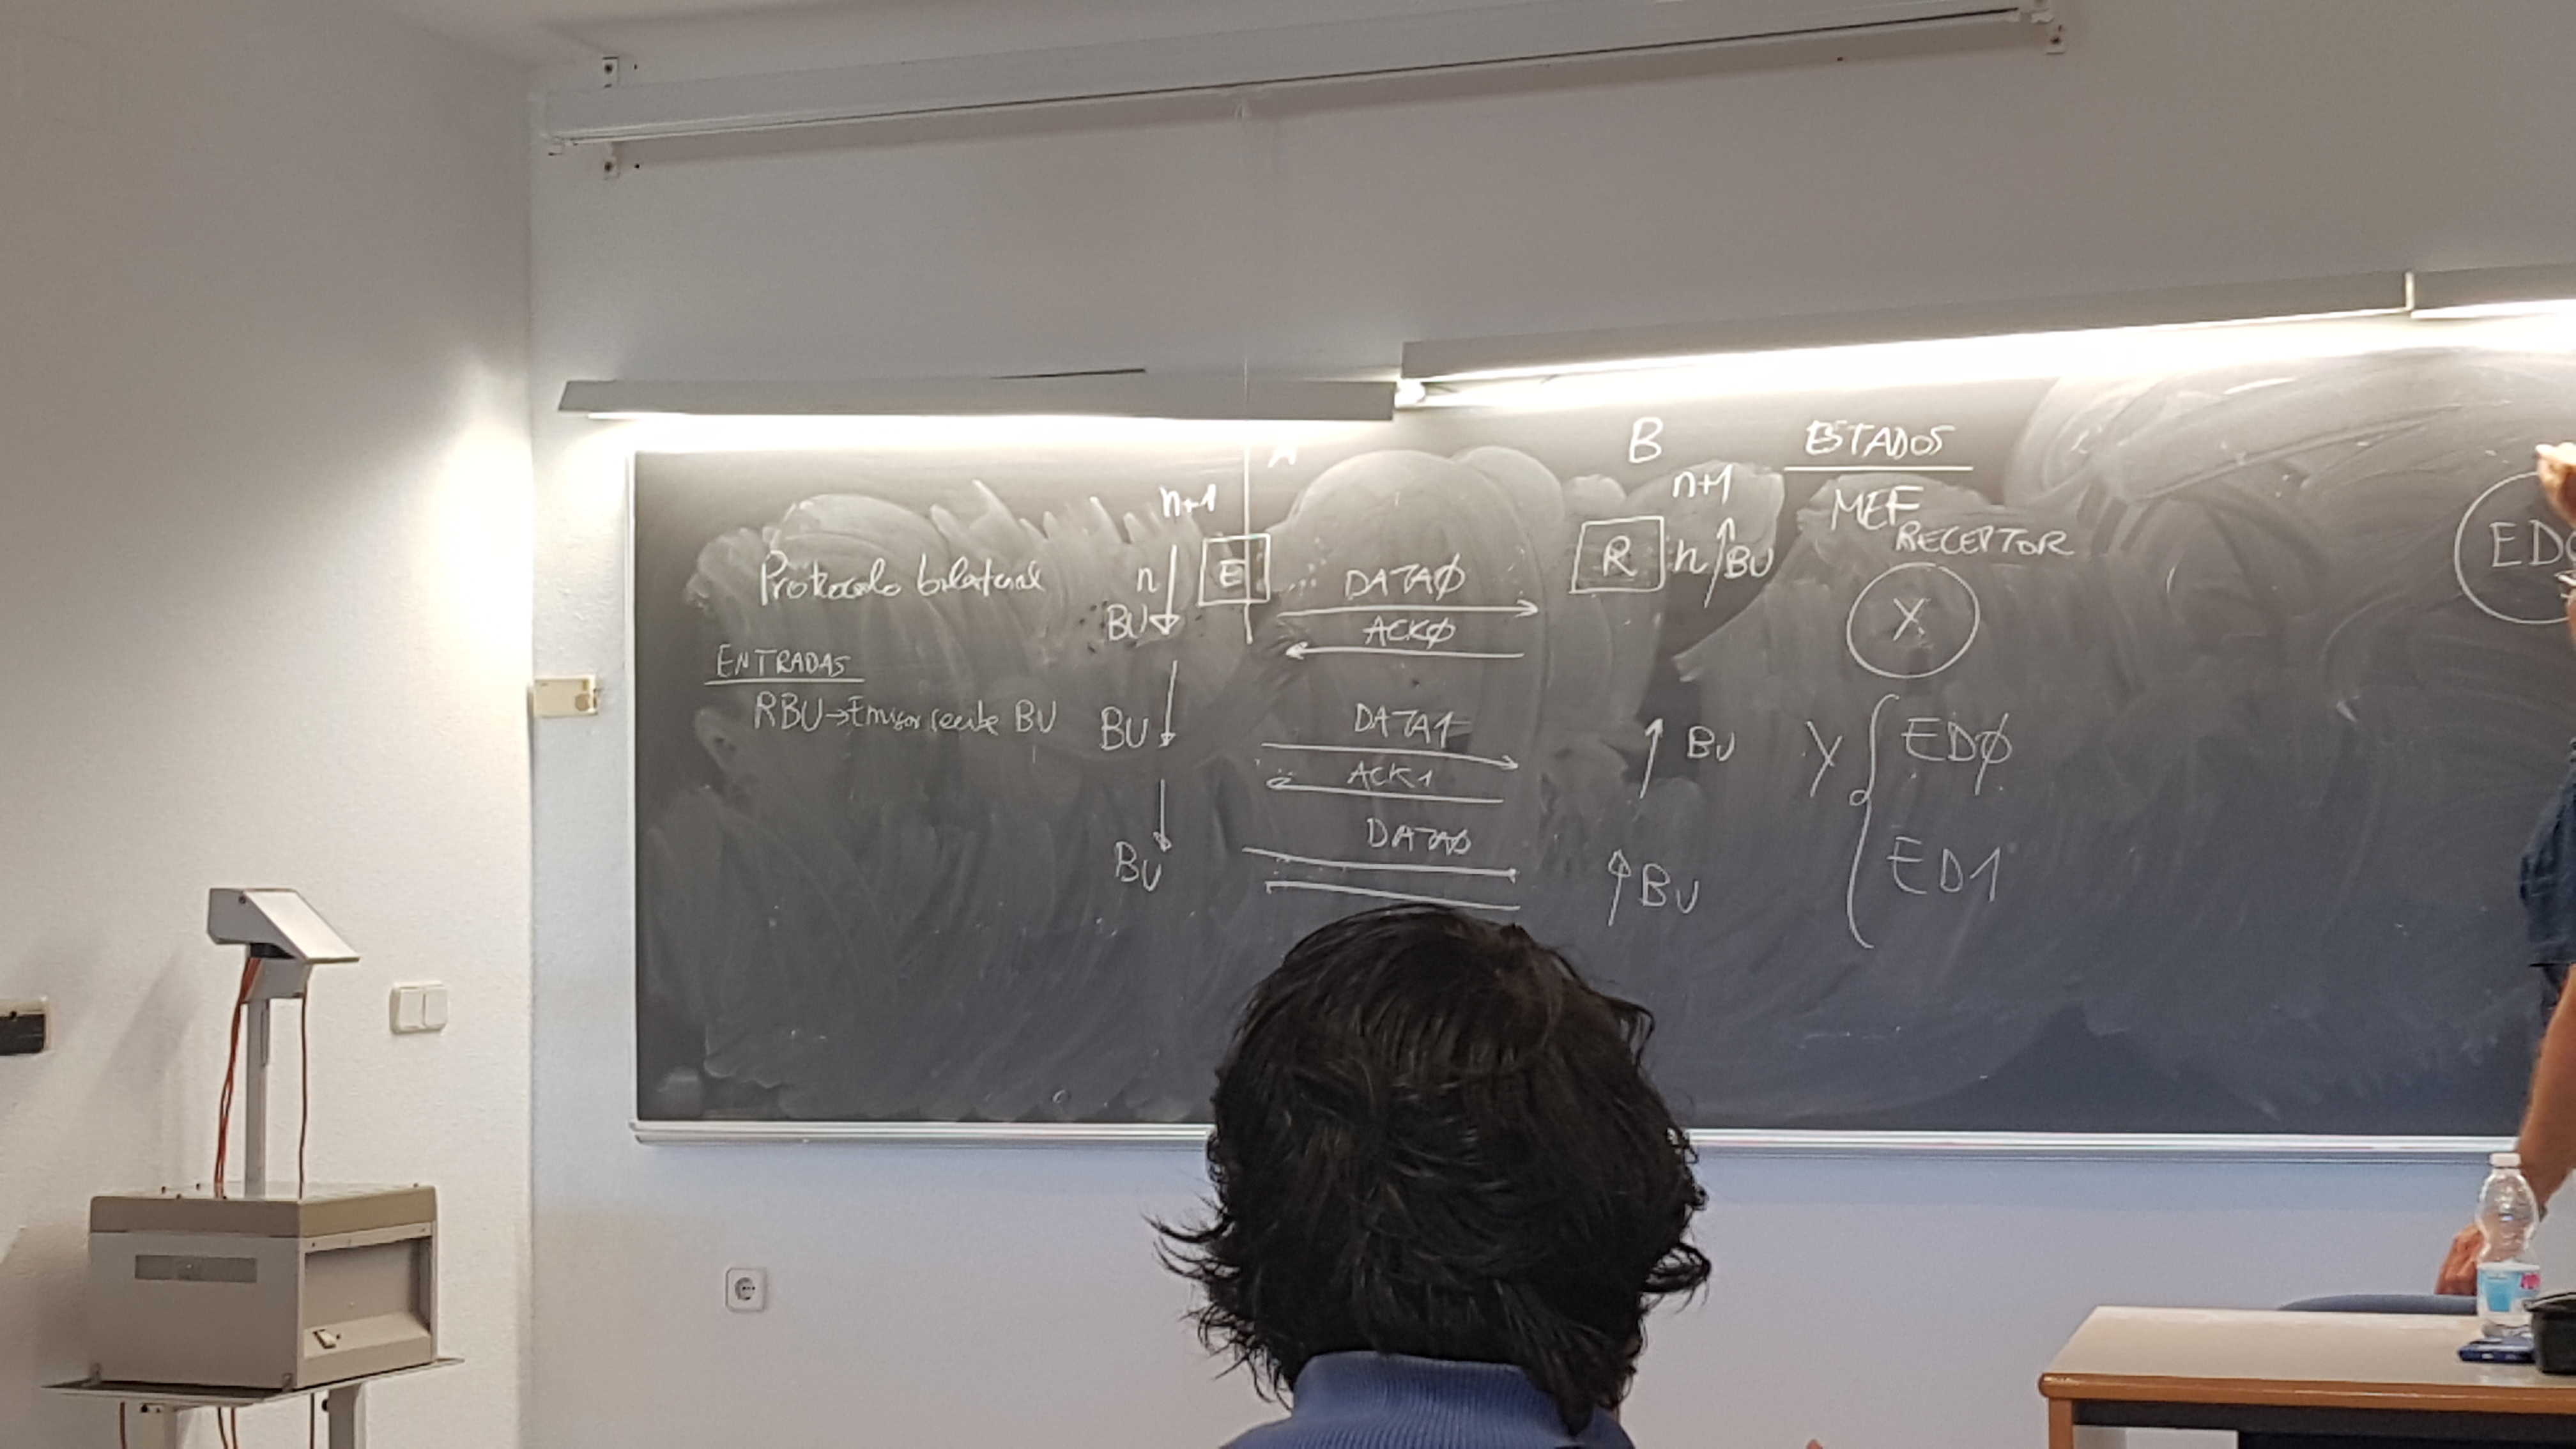 Protocolo bilateral
ENTRADAS
RBU→Emisor recibe BU
n+1
n
BU
BU
BU
E
DATAØ
ACKØ
DATA1
ACK1
DATAØ
B
n+1
R
n
BU
BU
BU
ESTADOS
MEF
RECEPTOR
X
Y
EDØ
ED1